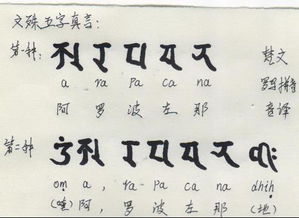 文殊五字真言:
第一种: 𑖀 𑖨 𑖢 𑖓 𑖡 梵文
a ra pa ca na 罗马拼音
阿 罗 波 左 那 音译
第二种 𑖌𑖼 𑖀 𑖨 𑖢 𑖓 𑖡 𑖠𑖱𑖾
oṃ a, ra pa ca na dhiḥ
(唵) 阿, 罗 波 左 那 (地)